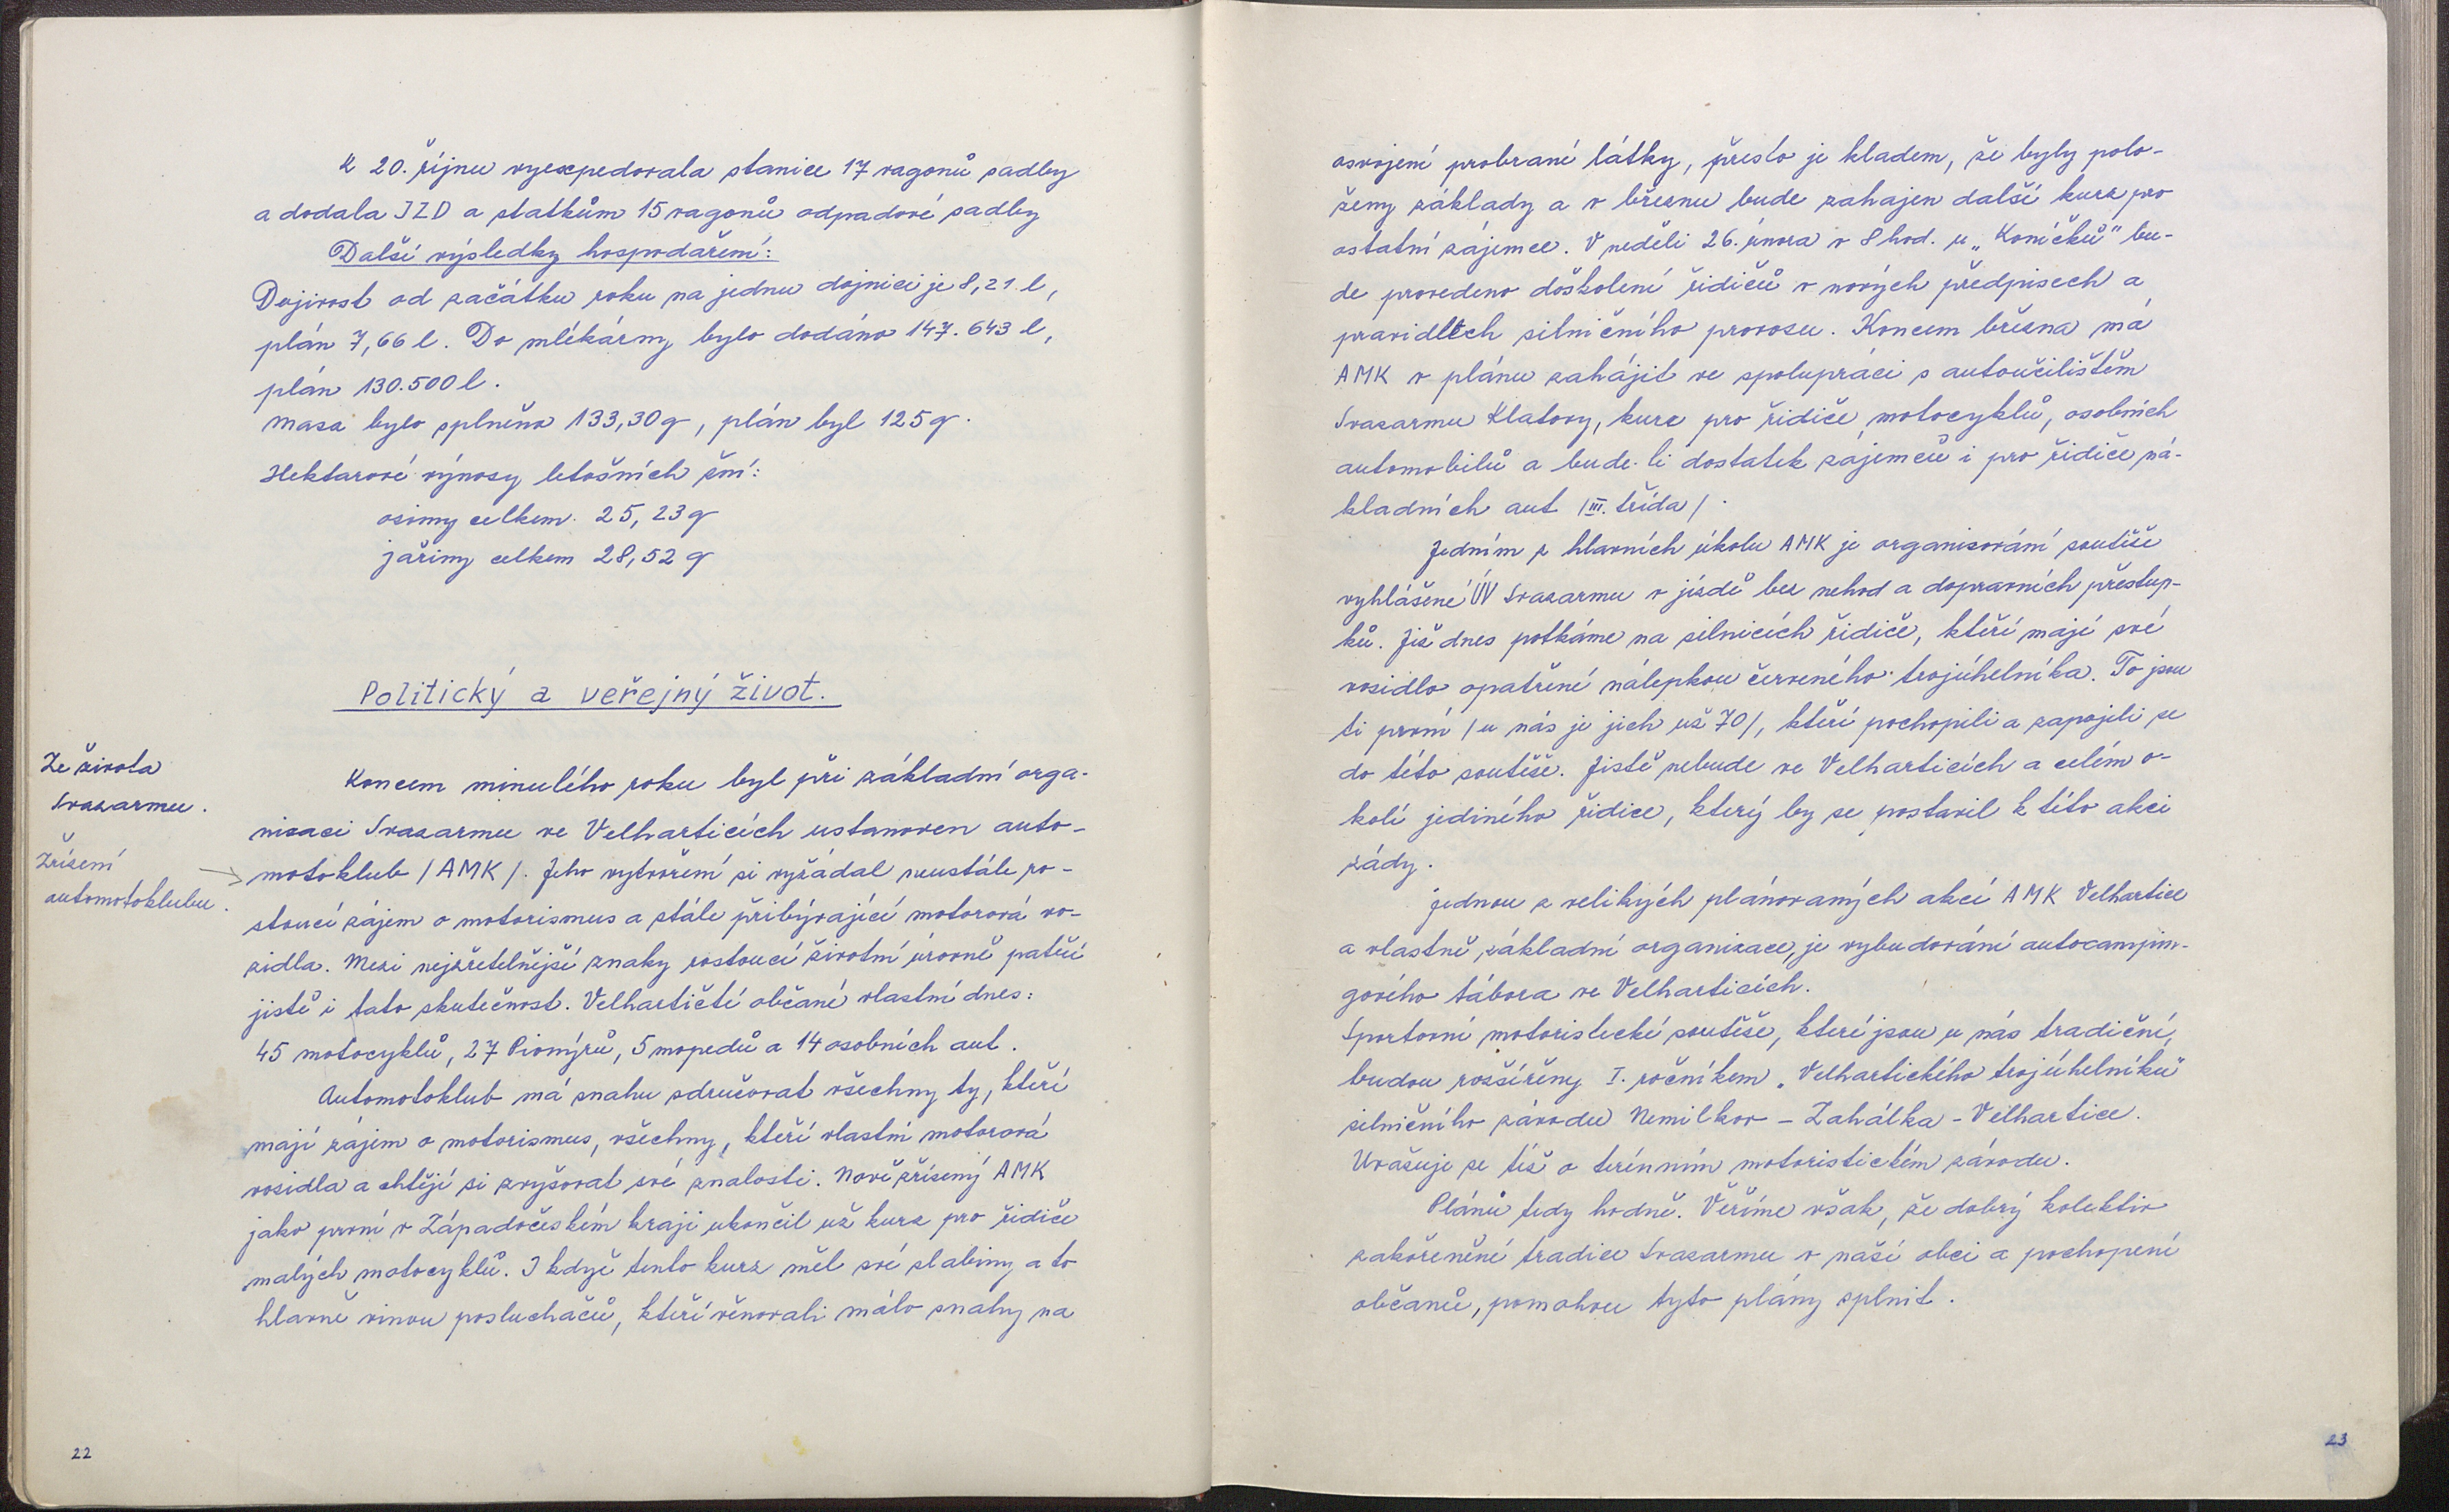 K 20. říjnu vyexpedovala stanice 17 vagonů sadby
a dodala JZD a statkům 15 vagonů odpadové sadby
Další výsledky hospodaření:
Dojivost od začátku roku na jednu dojnici je 8,21 l,
plán 7,66 l. Do mlékárny bylo dodáno 147.643 l,
plán 130.500 l.
Masa bylo splněno 133,30 q, plán byl 125 q.
Hektarové výnosy letošních žní:
ozimy celkem 25,23 q
jařiny celkem 28,52 q
Politický a veřejný život.
Ze života
Svazarmu.
Zřízení
automotoklubu.
Koncem minulého roku byl při základní orga-
nizaci Svazarmu ve Velharticích ustanoven auto-
motoklub /AMK/. Jeho vytvoření si vyžádal neustále ro-
stoucí zájem o motorismus a stále přibývající motorová vo-
zidla. Mezi nejzřetelnější znaky rostoucí životní úrovně patří
jistě i tato skutečnost. Velhartičtí občané vlastní dnes:
45 motocyklů, 27 Pionýrů, 5 mopedů a 14 osobních aut.
Automotoklub má snahu sdružovat všechny ty, kteří
mají zájem o motorismus, všechny, kteří vlastní motorová
vozidla a chtějí si zvyšovat své znalosti. Nově zřízený AMK
jako první v Západočeském kraji ukončil už kurz pro řidiče
malých motocyklů. I když tento kurz měl své slabiny a to
hlavně vinou posluchačů, kteří věnovali málo snahy na
22
osvojení probrané látky, přesto je kladem, že byly polo-
ženy základy a v březnu bude zahajen další kurz pro
ostatní zájemce. V neděli 26. února v 8 hod. u „Koníčků" bu-
de provedeno doškolení řidičů v nových předpisech a
pravidlech silničního provozu. Koncem března má
AMK v plánu zahájit ve spolupráci s autoučilištěm
Svazarmu Klatovy, kurz pro řidiče motocyklů, osobních
automobilů a bude-li dostatek zájemců i pro řidiče ná-
kladních aut /III. třída/.
Jedním z hlavních úkolu AMK je organizování soutěže
vyhlášené ÚV Svazarmu v jízdě bez nehod a dopravních přestup-
ků. Již dnes potkáme na silnicích řidiče, kteří mají své
vozidlo opatřené nálepkou červeného trojúhelníka. To jsou
ti první /u nás je jich už 70/, kteří pochopili a zapojili se
do této soutěže. Jistě nebude ve Velharticích a celém o-
kolí jediného řidice, který by se postavil k této akci
zády.
Jednou z velikých plánovaných akcí AMK Velhartice
a vlastně, základní organizace, je vybudování autocampin-
gového tábora ve Velharticích.
Sportovní motoristické soutěže, které jsou u nás tradiční,
budou rozšířeny I. ročníkem „Velhartického trojúhelníku"
silničního závodu Nemilkov - Zahálka - Velhartice.
Uvažuje se též o terénním motoristickém závodu.
Plánů tedy hodně. Věříme však, že dobrý kolektiv
zakořenění tradice Svazarmu v naší obci a pochopení
občanů, pomohou tyto plány splnit.
23